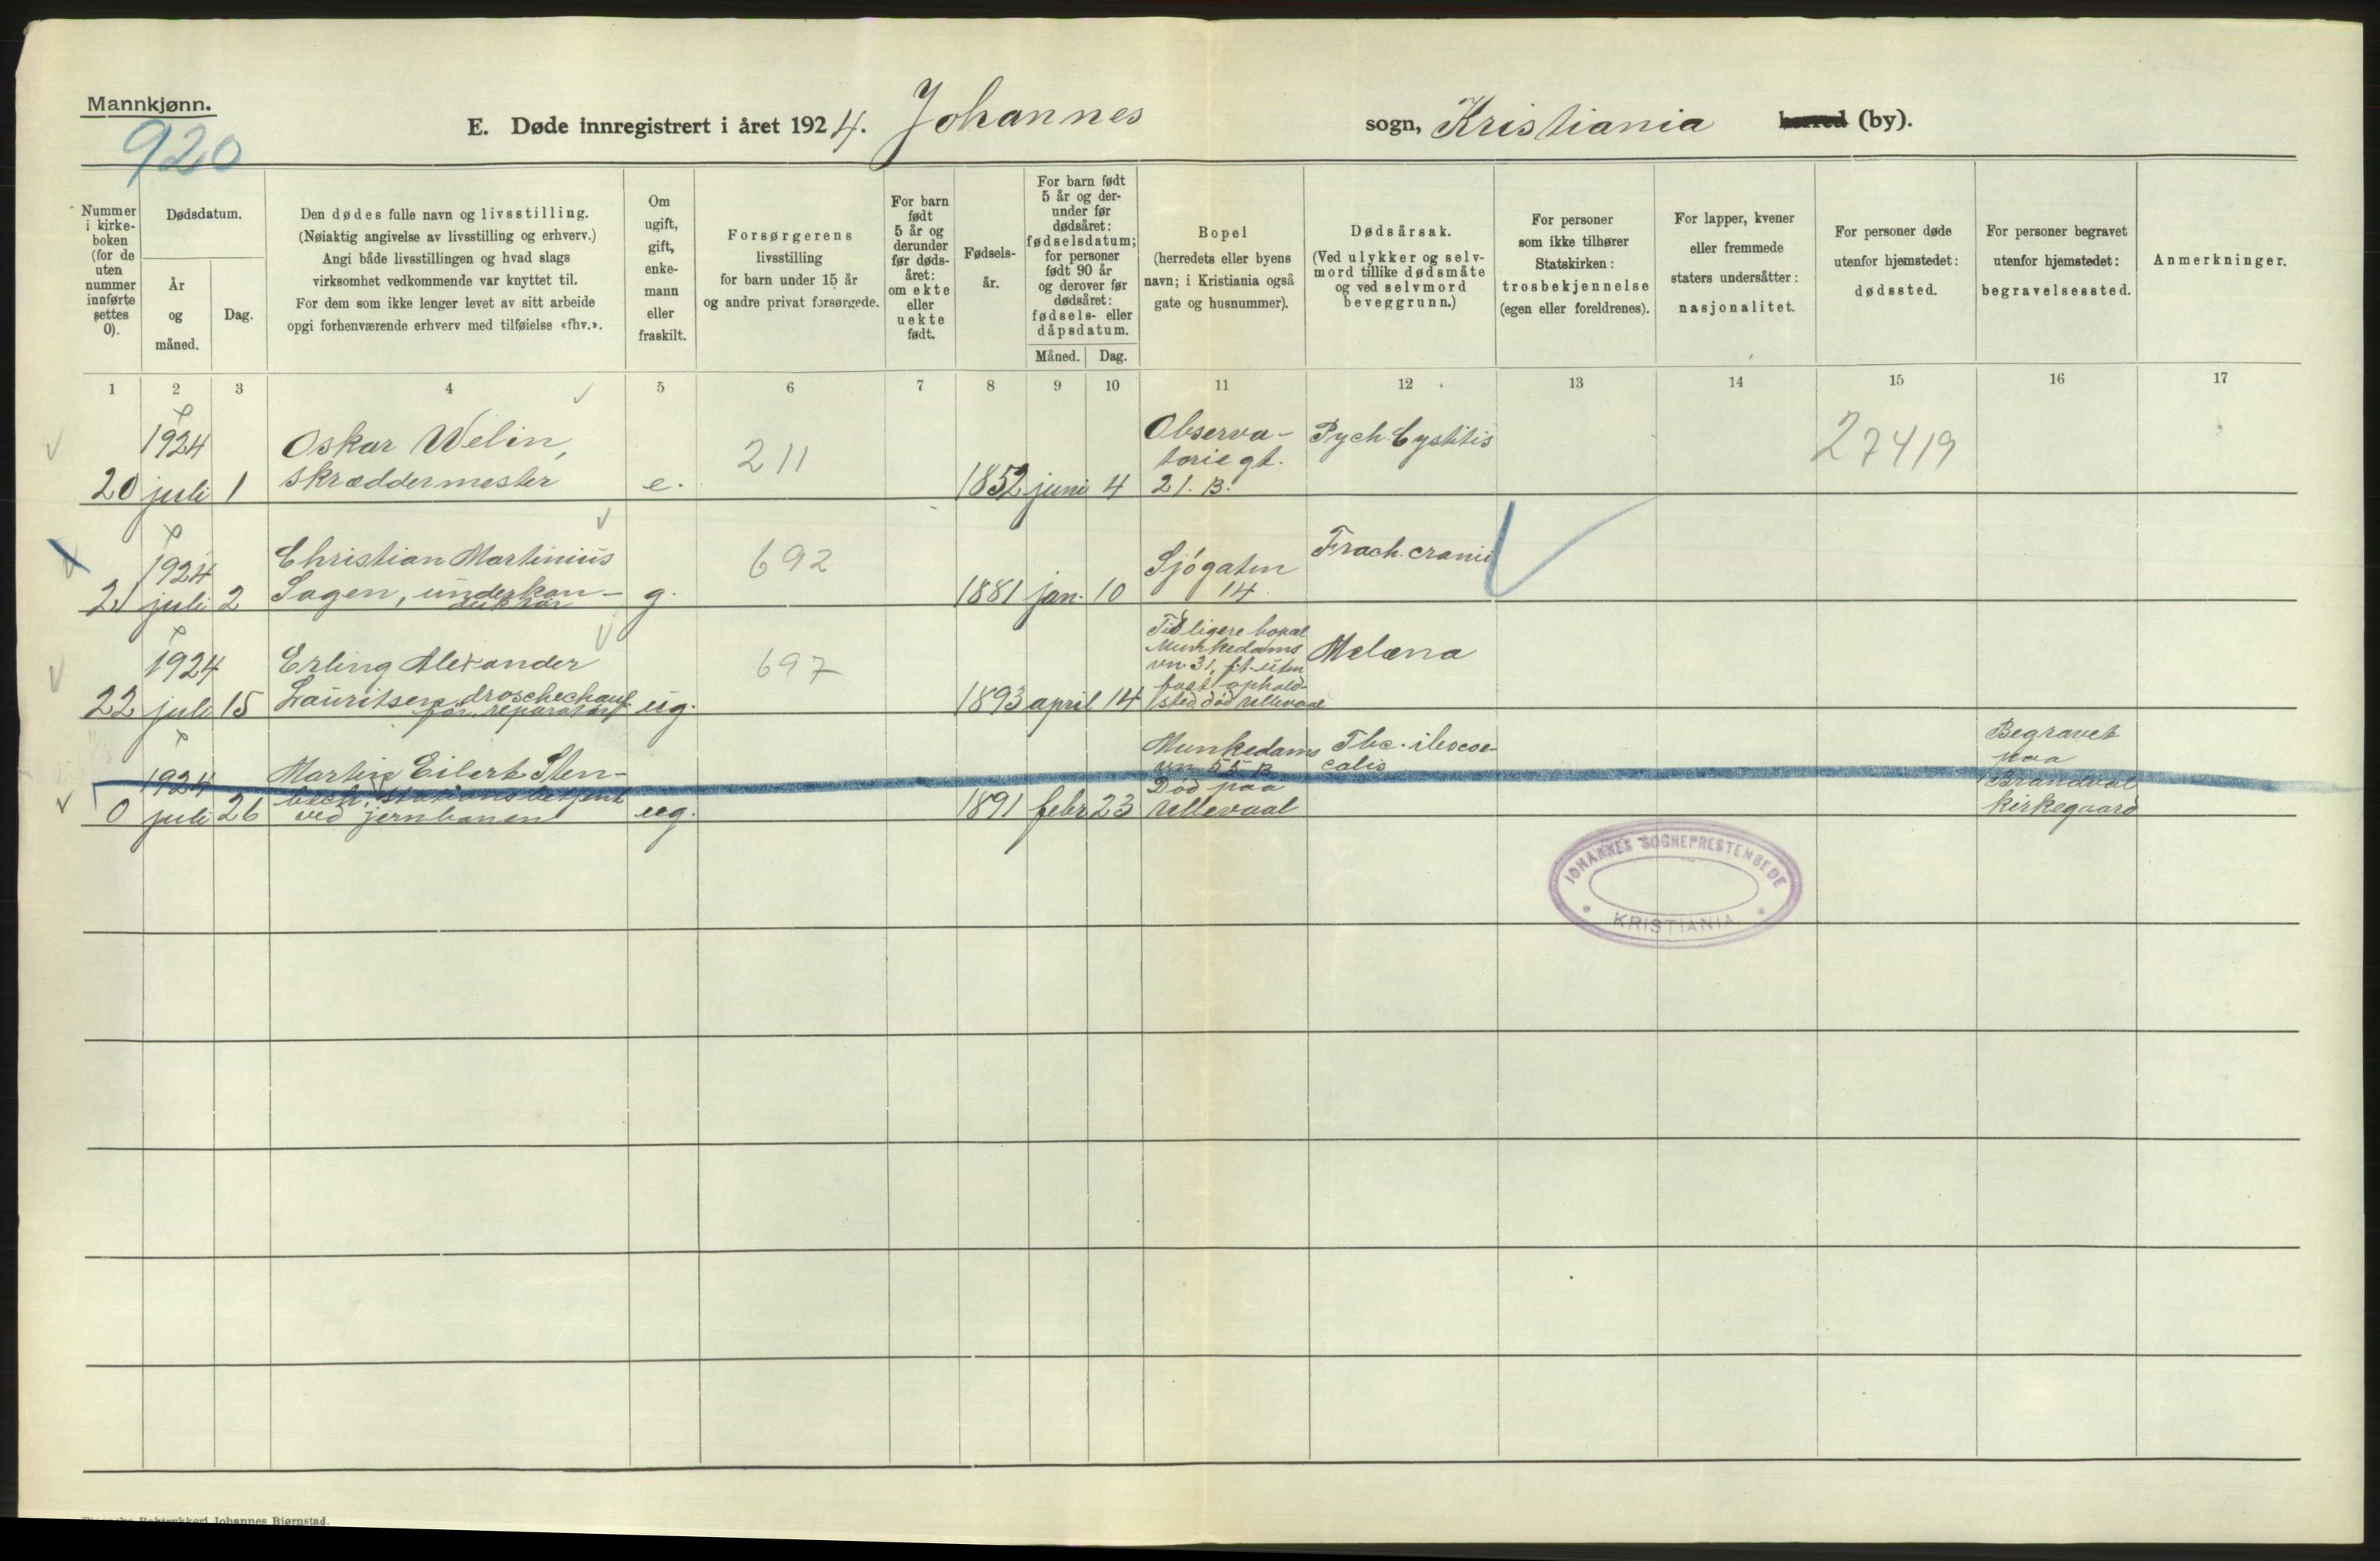 Mannkjønn.
920
E. Døde innregistrert i året 1924. Johannes sogn, Kristiania herred (by).
Nummer i kirke- boken (for de uten nummer innførte settes 0).
Dødsdatum.
År og måned.
Dag.
Den dødes fulle navn og livsstilling.
(Nøiaktig angivelse av livsstilling og erhverv.)
Angi både livsstillingen og hvad slags
virksomhet vedkommende var knyttet til.
For dem som ikke lenger levet av sitt arbeide
opgi forhenværende erhverv med tilføielse «fhv.».
Om ugift, gift, enke- mann eller fraskilt.
Forsørgerens
livsstilling
for barn under 15 år
og andre privat forsørgede.
For barn født 5 år og derunder før døds- året: om ekte eller uekte født.
Fødsels- år.
For barn født 5 år og der- under før dødsåret: fødselsdatum; for personer født 90 år og derover før dødsåret: fødsels- eller dåpsdatum.
Måned. Dag.
Bopel
(herredets eller byens
navn; i Kristiania også
gate og husnummer).
Dødsårsak.
(Ved ulykker og selv-
mord tillike dødsmåte
og ved selvmord
beveggrunn.)
For personer
som ikke tilhører
Statskirken:
trosbekjennelse
(egen eller foreldrenes).
For lapper, kvener
eller fremmede
staters undersåtter:
nasjonalitet.
For personer døde
utenfor hjemstedet:
dødssted.
For personer begravet
utenfor hjemstedet:
begravelsessted.
Anmerkninger.
1 2 3 4 5 6 7 8 9 10 11 12 13 14 15 16 17
1924
20 juli 1
Oskar Welin,
skræddermester
e.
211
1852 juni 4
Observa-
torie gt.
21. B.
Pych. Cystitis
27419
1924
21 juli 2
Christian Martinius
Sagen, underkon-
duktør
g.
692
1881 jan. 10
Sjøgaten
14.
Frach. cranii
1924
22 juli 15
Erling Alexander
Lauritsen, droschechauf-
før, reparatør
ug.
697
1893 april 14
Tidligere bopæl
Munkedams
vn. 31, f.t. uten
fast ophold-
sted, død Ullevaal
Melæna
1924
0 juli 26
Martin Eilert Sten-
bech, stationsbetjent
ved jernbanen
ug.
1891 febr 23
Munkedams
vn 55 B
Død paa
Ullevaal
Tbc. ileocoe-
calis
Begravet
paa
Brandval
kirkegaard
JOHANNES SOGNEPRESTEMBEDE
KRISTIANIA
Johannes Bjørnstad.